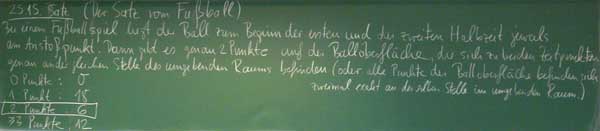 25.15. Satz (Der Satz vom Fußball)
Zu einem Fußballspiel liegt der Ball zum Beginn der ersten und der zweiten Halbzeit jeweils
am Anstoßpunkt. Dann gibt es genau 2 Punkte auf der Balloberfläche, die sich zu beiden Zeitpunkten
genau an der gleichen Stelle des umgebenden Raums befinden (oder alle Punkte der Balloberfläche befinden sich
zweimal exakt an derselben Stelle im umgebenden Raum.)
0 Punkte: 0
1 Punkt: 18
2 Punkte 6
≥3 Punkte: 12